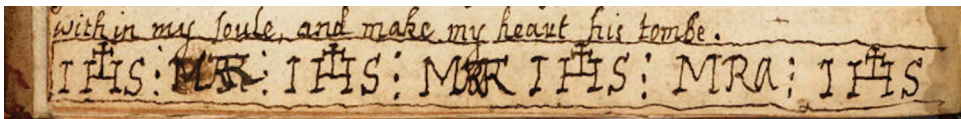 within my soule, and make my heart his tombe.
IHS : MRA : IHS : MRA IHS : MRA : IHS